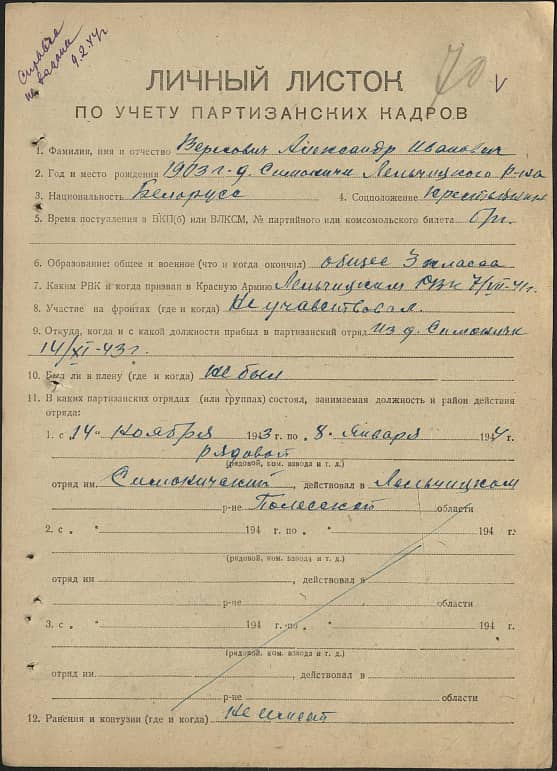 Справка
не выдана
9.2.44г
70 V
ЛИЧНЫЙ ЛИСТОК
ПО УЧЕТУ ПАРТИЗАНСКИХ КАДРОВ
1. Фамилия, имя и отчество Вересович Александр Иванович
2. Год и место рождения 1903 г. д. Симоничи Лельчицкого р-на
3. Национальность Белорусс 4. Соцположение Крестьянин
5. Время поступления в ВКП(б) или ВЛКСМ, № партийного или комсомольского билета б/п.
6. Образование: общее и военное (что и когда окончил) общее 3 класса
7. Каким РВК и когда призван в Красную Армию Лельчицким РВК 7/VII-41г.
8. Участие на фронтах (где и когда) Не учавствовал.
9. Откуда, когда и с какой должности прибыл в партизанский отряд из д. Симоничи
14/XI-43г.
10. Был ли в плену (где и когда) не был
11. В каких партизанских отрядах (или группах) состоял, занимаемая должность и район действия
отряда:
1. с „14" ноября 1943 г. по „8" января 1944 г.
рядовой
(рядовой, ком. взвода и т. д.)
отряд им. Симонический, действовал в Лельчицком
р-не Полесской области
2. с „ " 194 г. по „ " 194 г.
(рядовой, ком. взвода и т. д.)
отряд им. , действовал в
р-не области
3. с „ " 194 г. по „ " 194 г.
(рядовой, ком. взвода и т. д.)
отряд им. , действовал в
р-не области
12. Ранения и контузии (где и когда) не имеет